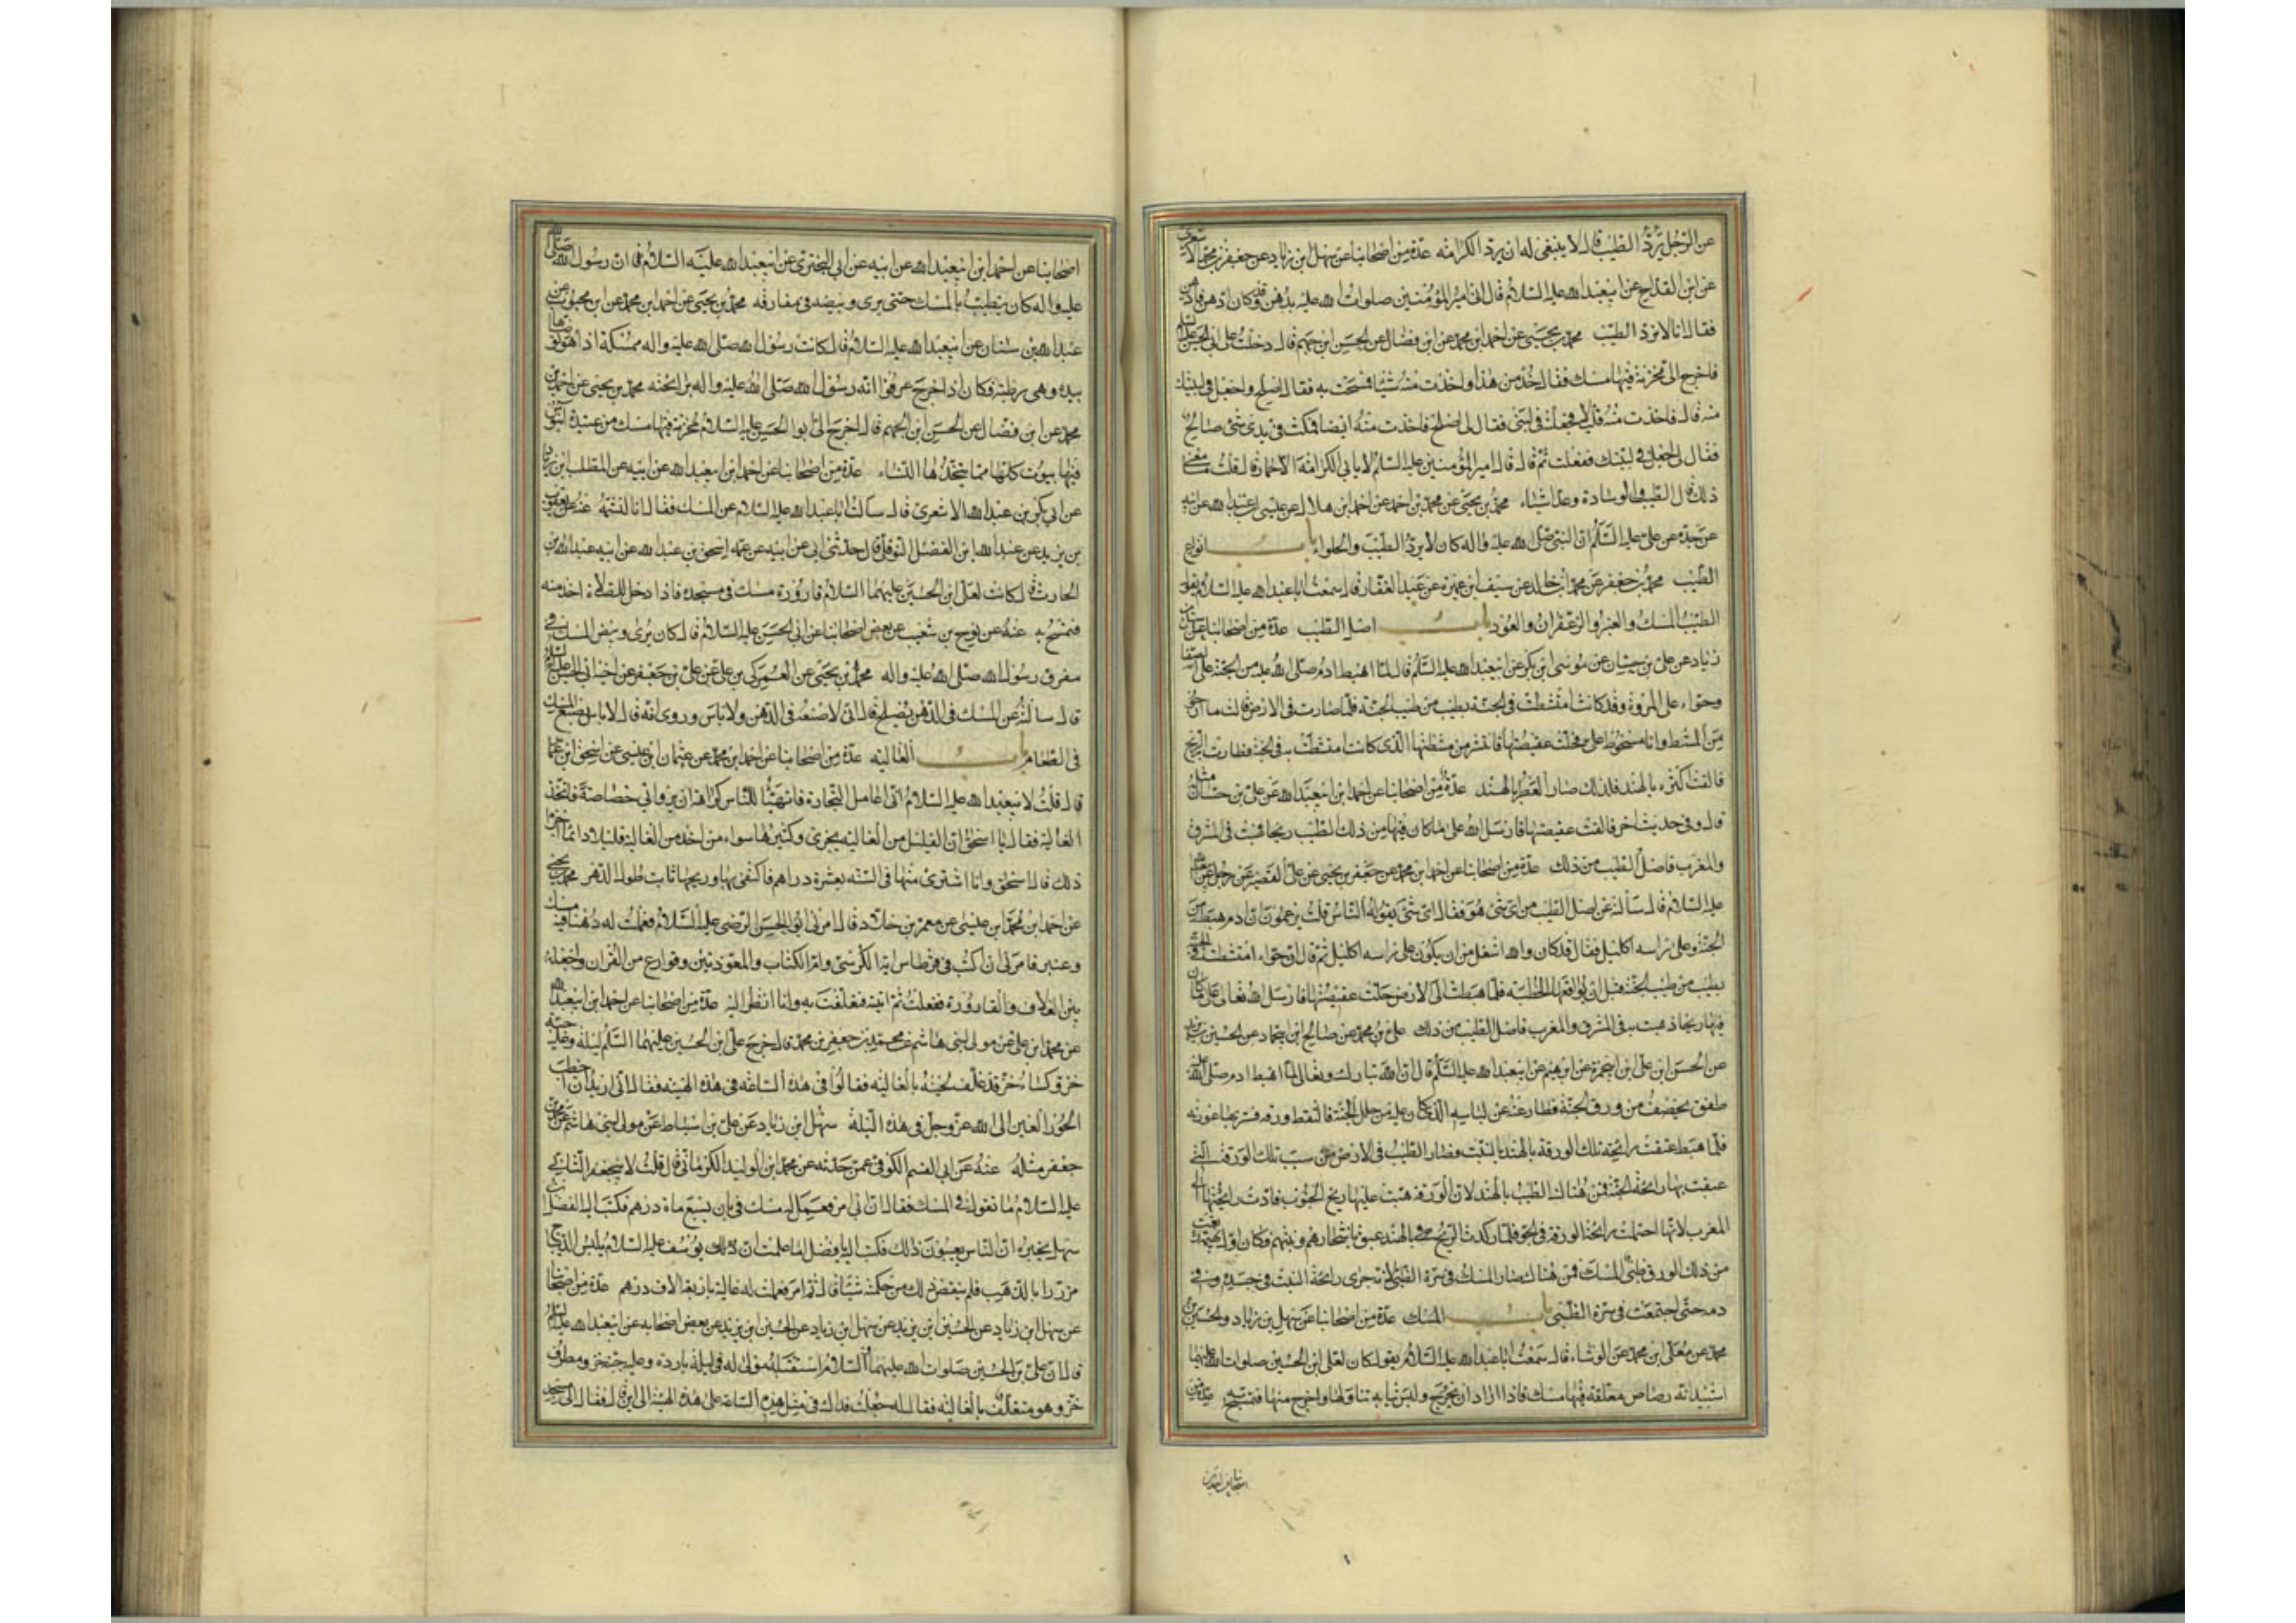 عن الرجل يردّ الطيب قال لا ينبغى له ان يردّ الكرامة عدّة من اصحابنا عن سهل بن زياد عن جعفر بن محمّد الاشعرى
عن ابن القداح عن ابيعبد الله عليه السلام قال اتى امير المؤمنين صلوات الله عليه بدهن وقد كان ادهن فادهن
فقال انا لا نردّ الطيب محمد بن يحيى عن احمد ابن محمد عن ابن فضال عن الحسن ابن جهم قال دخلت على ابى الحسن عليه السلم
فاخرج الى مخزنة فيها مسك فقال خذ من هذا واخذت منه شيئا فتمسحت به فقال اصلح واجعل فى لبتك
منه قال فاخذت منه قليلا فجعلته فى لبتى فقال لى اصلح فاخذت منه ايضا فمكث فى يدى شئ صالح
فقال لى اجعل فى لبتك ففعلت ثم قال قال امير المؤمنين عليه السلم لا يابى الكرامة الا حمار قال قلت ما معنى
ذلك قال الطيب والوسادة وعدّ اشياء محمد بن يحيى عن محمد بن احمد عن احمد ابن هلال عن عيسى بن عبد الله عن ابيه
عن جدّه عن على عليه السلم ان النبى صلى الله عليه واله كان لا يردّ الطيب والحلواء باب انواع
الطيب محمد بن جعفر عن محمد ابن خالد عن سيف ابن عميرة عن عبد الغفار قال سمعت ابا عبد الله عليه السلام يقول
الطيب المسك والعنبر والزعفران والعود باب اصل الطيب عدّة من اصحابنا عن سهل بن
زياد عن على بن حسان عن موسى ابن بكر عن ابيعبد الله عليه السلم قال لما اهبط ادم صلى الله عليه من الجنة على الصفا
وحواء على المروة وقد كانت امتشطت فى الجنة بطيب من طيب الجنة فلما صارت فى الارض قالت ما ارجو
من المشط وانا مسخوط على فحلت عقيصتها فانتثر من مشطتها الذى كانت امتشطت به فى الجنة فطارت به الريح
فالقت اكثره بالهند فلذلك صار العطر بالهند عدّة من اصحابنا عن احمد ابن ابيعبد الله عن على بن حسان مثله
قال وفى حديث اخر فالقت عقيصتها فارسل الله على ما كان فيها من ذلك الطيب ريحا فهبت فى المشرق
والمغرب فاصل الطيب من ذلك عدّة من اصحابنا عن احمد ابن محمد عن جعفر بن يحيى عن على القصير عن رجل عن ابيعبد الله
عليه السلام قال سألته عن اصل الطيب من اى شئ هو فقال اى شئ يقوله الناس قلت يزعمون ان ادم هبط من
الجنة وعلى راسه اكليل فقال قد كان والله اشغل من ان يكون على راسه اكليل ثم قال ان حواء امتشطت فى الجنة
بطيب من طيب الجنة قبل ان يواقعها الخطيئة فلما هبطت الى الارض حلت عقيصتها فارسل الله تعالى على ما كان
فيها ريحا فهبت به فى المشرق والمغرب فاصل الطيب من ذلك على بن محمد عن صالح ابن ابى حماد عن الحسين بن يزيد
عن الحسن ابن على ابن ابى حمزة عن ابراهيم عن ابيعبد الله عليه السلم قال ان الله تبارك وتعالى لما اهبط ادم صلى الله عليه
طفق يخصف من ورق الجنة فطار عنه عن لباسه الذى كان عليه من حلل الجنة فالتقط ورقه فستر بها عورته
فلما هبط عبقت رائحة تلك الورقة بالهند بالنبت فصار الطيب فى الارض من سبب تلك الورقة التى
عبقت بها رايحة الجنة فمن هناك الطيب بالهند لان الورقة هبت عليها ريح الجنوب فادت رايحتها الى
المغرب لانها احتملت رائحة الورقة فى الجو فلما ركدت الريح بالهند عبق باشجارهم ونبتهم وكان اول بهيمة رتعت
من ذلك الورق ظبى المسك فمن هناك صار المسك فى سرّة الظبى لانه جرى رائحة النبت فى جسده وفى
دمه حتى اجتمعت فى سرة الظبى باب المسك عدّة من اصحابنا عن سهل بن زياد والحسين بن
محمد عن معلى ابن محمد عن الوشاء قال سمعت ابا عبد الله عليه السلام يقول كان لعلى ابن الحسين صلوات الله عليهما
اشبيدانة رصاص معلقة فيها مسك فاذا اراد ان يخرج ولبس ثيابه تناولها واخرج منها فتمسح به عدة من
اصحابنا عن احمد بن
اصحابنا عن احمد ابن ابيعبد الله عن ابيه عن ابى البخترى عن ابيعبد الله عليه السلام قال ان رسول الله صلى الله
عليه واله كان يتطيب بالمسك حتى يرى وبيصه فى مفارقه محمد بن يحيى عن احمد ابن محمد عن ابن محبوب عن
عبد الله بن سنان عن ابيعبد الله عليه السلام قال كانت لرسول الله صلى الله عليه واله ممسكة اذا هو توضا اخذها
بيده وهى رطبة فكان اذا خرج عرفوا انه رسول الله صلى الله عليه واله برايحته محمد بن يحيى عن احمد بن
محمد عن ابن فضال عن الحسن ابن الجهم قال اخرج الى ابو الحسن عليه السلام مخزنة فيها مسك من عتيدة ابنوس
فيها بيوت كلها مما يتخذها النساء عدّة من اصحابنا عن احمد ابن ابيعبد الله عن ابيه عن المطلب ابن زياد
عن ابى بكر بن عبد الله الاشعرى قال سالت ابا عبد الله عليه السلام عن المسك فقال انا لنشمه عنه عن يعقوب
بن يزيد عن عبد الله ابن الفضل النوفلى قال حدثنى ابى عن ابيه عن عمه اسحق بن عبد الله عن ابيه عبد الله بن
الحارث قال كانت لعلى ابن الحسين عليهما السلام قارورة مسك فى مسجده فاذا دخل للصلاة اخذ منه
فتمسح به عنه عن نوح بن شعيب عن بعض اصحابنا عن ابى الحسن عليه السلام قال كان يرى وبيص المسك فى
مفرق رسول الله صلى الله عليه واله محمد بن يحيى عن العمركى بن على عن على بن جعفر عن اخيه ابى الحسن عليه السلم
قال سالته عن المسك فى الدهن يصلح قال انى لاصنعه فى الدهن ولا باس وروى انه قال لا باس بصنع المسك
فى الطعام باب الغالية عدّة من اصحابنا عن احمد ابن محمد عن عثمان ابن عيسى عن اسحق ابن عمار
قال قلت لابيعبد الله عليه السلام انى اعامل التجارة فاتهيأ للناس كراهة ان يروا بى خصاصة فاتخذ
الغالية فقال يا اسحق ان القليل من الغالية يجزى وكثيرها سواء من اخذ من الغالية قليلا دائما اجزاه
ذلك قال اسحق وانا اشترى منها فى السنة بعشرة دراهم فاكتفى بها وريحها ثابت طول الدهر محمد بن يحيى
عن احمد ابن محمد ابن عيسى عن معمر بن خلاد قال امرنى ابو الحسن الرضى عليه السلام فعملت له دهنا فيه مسك
وعنبر فامرنى ان اكتب فى قرطاس اية الكرسى وام الكتاب والمعوذتين وقوارع من القران واجعله
بين الغلاف والقارورة ففعلت ثم اتيته فتغلف به وانا انظر اليه عدّة من اصحابنا عن احمد ابن ابيعبد الله
عن محمد ابن على عن مولى لبنى هاشم عن محمد بن جعفر بن محمد قال خرج على ابن الحسين عليهما السلم ليلة وعليه جبة
خز وكساء خز قد غلف لحيته بالغالية فقالوا فى هذه الساعة فى هذه الهيئة فقال انى اريد ان اخطب
الحور العين الى الله عز وجل فى هذه الليلة سهل ابن زياد عن على بن اسباط عن مولى لبنى هاشم عن محمد بن
جعفر مثله عنه عن ابى القسم الكوفى عمن حدثه عن محمد ابن الوليد الكرمانى قال قلت لابيجعفر الثانى
عليه السلام ما تقول فى المسك فقال ان ابى امر فعمل له مسك فى بان بسبع ماة درهم فكتب اليه الفضل بن
سهل يخبره ان الناس يعيبون ذلك فكتب اليه يا فضل اما علمت ان يوسف عليه السلام يلبس الديباج
مزررا بالذهب فلم ينقص ذلك من حكمته شيئا قال ثم امر فعملت له غالية باربعة الاف درهم عدّة من اصحابنا
عن سهل ابن زياد عن الحسين ابن يزيد عن سهل ابن زياد عن الحسين ابن يزيد عن بعض اصحابه عن ابيعبد الله عليه السلم
قال ان على بن الحسين صلوات الله عليهما السلام استقبله مولى له فى ليلة باردة وعليه جبة خز ومطرف
خز وهو متغلف بالغالية فقال له جعلت فداك فى مثل هذه الساعة على هذه الهيئة الى اين قال فقال الى مسجد